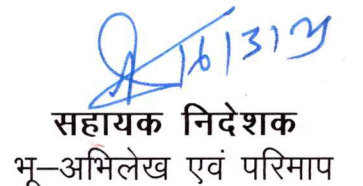 16/3/24
सहायक निदेशक
भू–अभिलेख एवं परिमाप